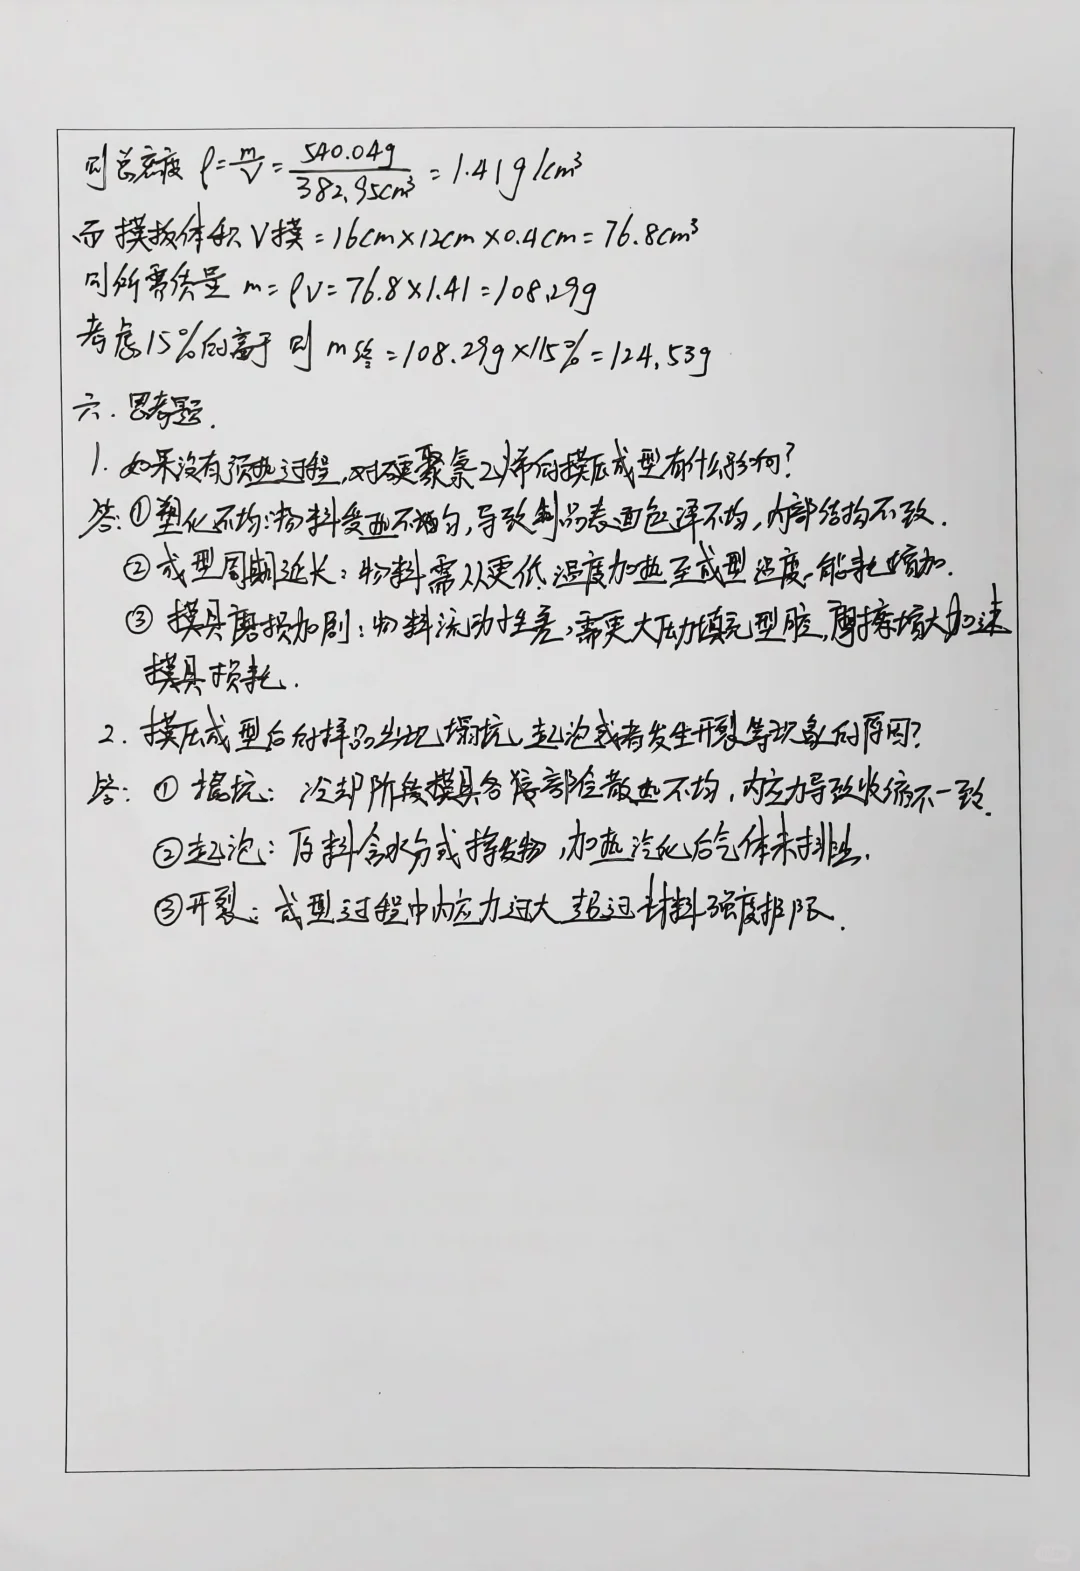 则总密度 ρ=m/V=540.04g/382.95cm³=1.41g/cm³
而摸板体积V摸=16cm×12cm×0.4cm=76.8cm³
则所需质量 m=ρV=76.8×1.41=108.29g
考虑15%的富于 则 m终=108.29g×115%=124.53g
六.思考题.
1.如果没有预热过程,对硬聚氯乙烯的摸压成型有什么影响?
答:①塑化不均:物料受热不均匀,导致制品表面色泽不均,内部结构不致.
②成型周期延长:物料需从更低温度加热至成型温度,能耗增加.
③摸具磨损加剧:物料流动性差,需更大压力填充型腔,摩擦增大加速
摸具损耗.
2.摸压成型后的样品出现塌坑、起泡或者发生开裂等现象的原因?
答:①塌坑:冷却阶段摸具各部位散热不均,内应力导致收缩不一致.
②起泡:原料含水分或挥发物,加热汽化后气体未排出.
③开裂:成型过程中内应力过大超过材料强度极限.